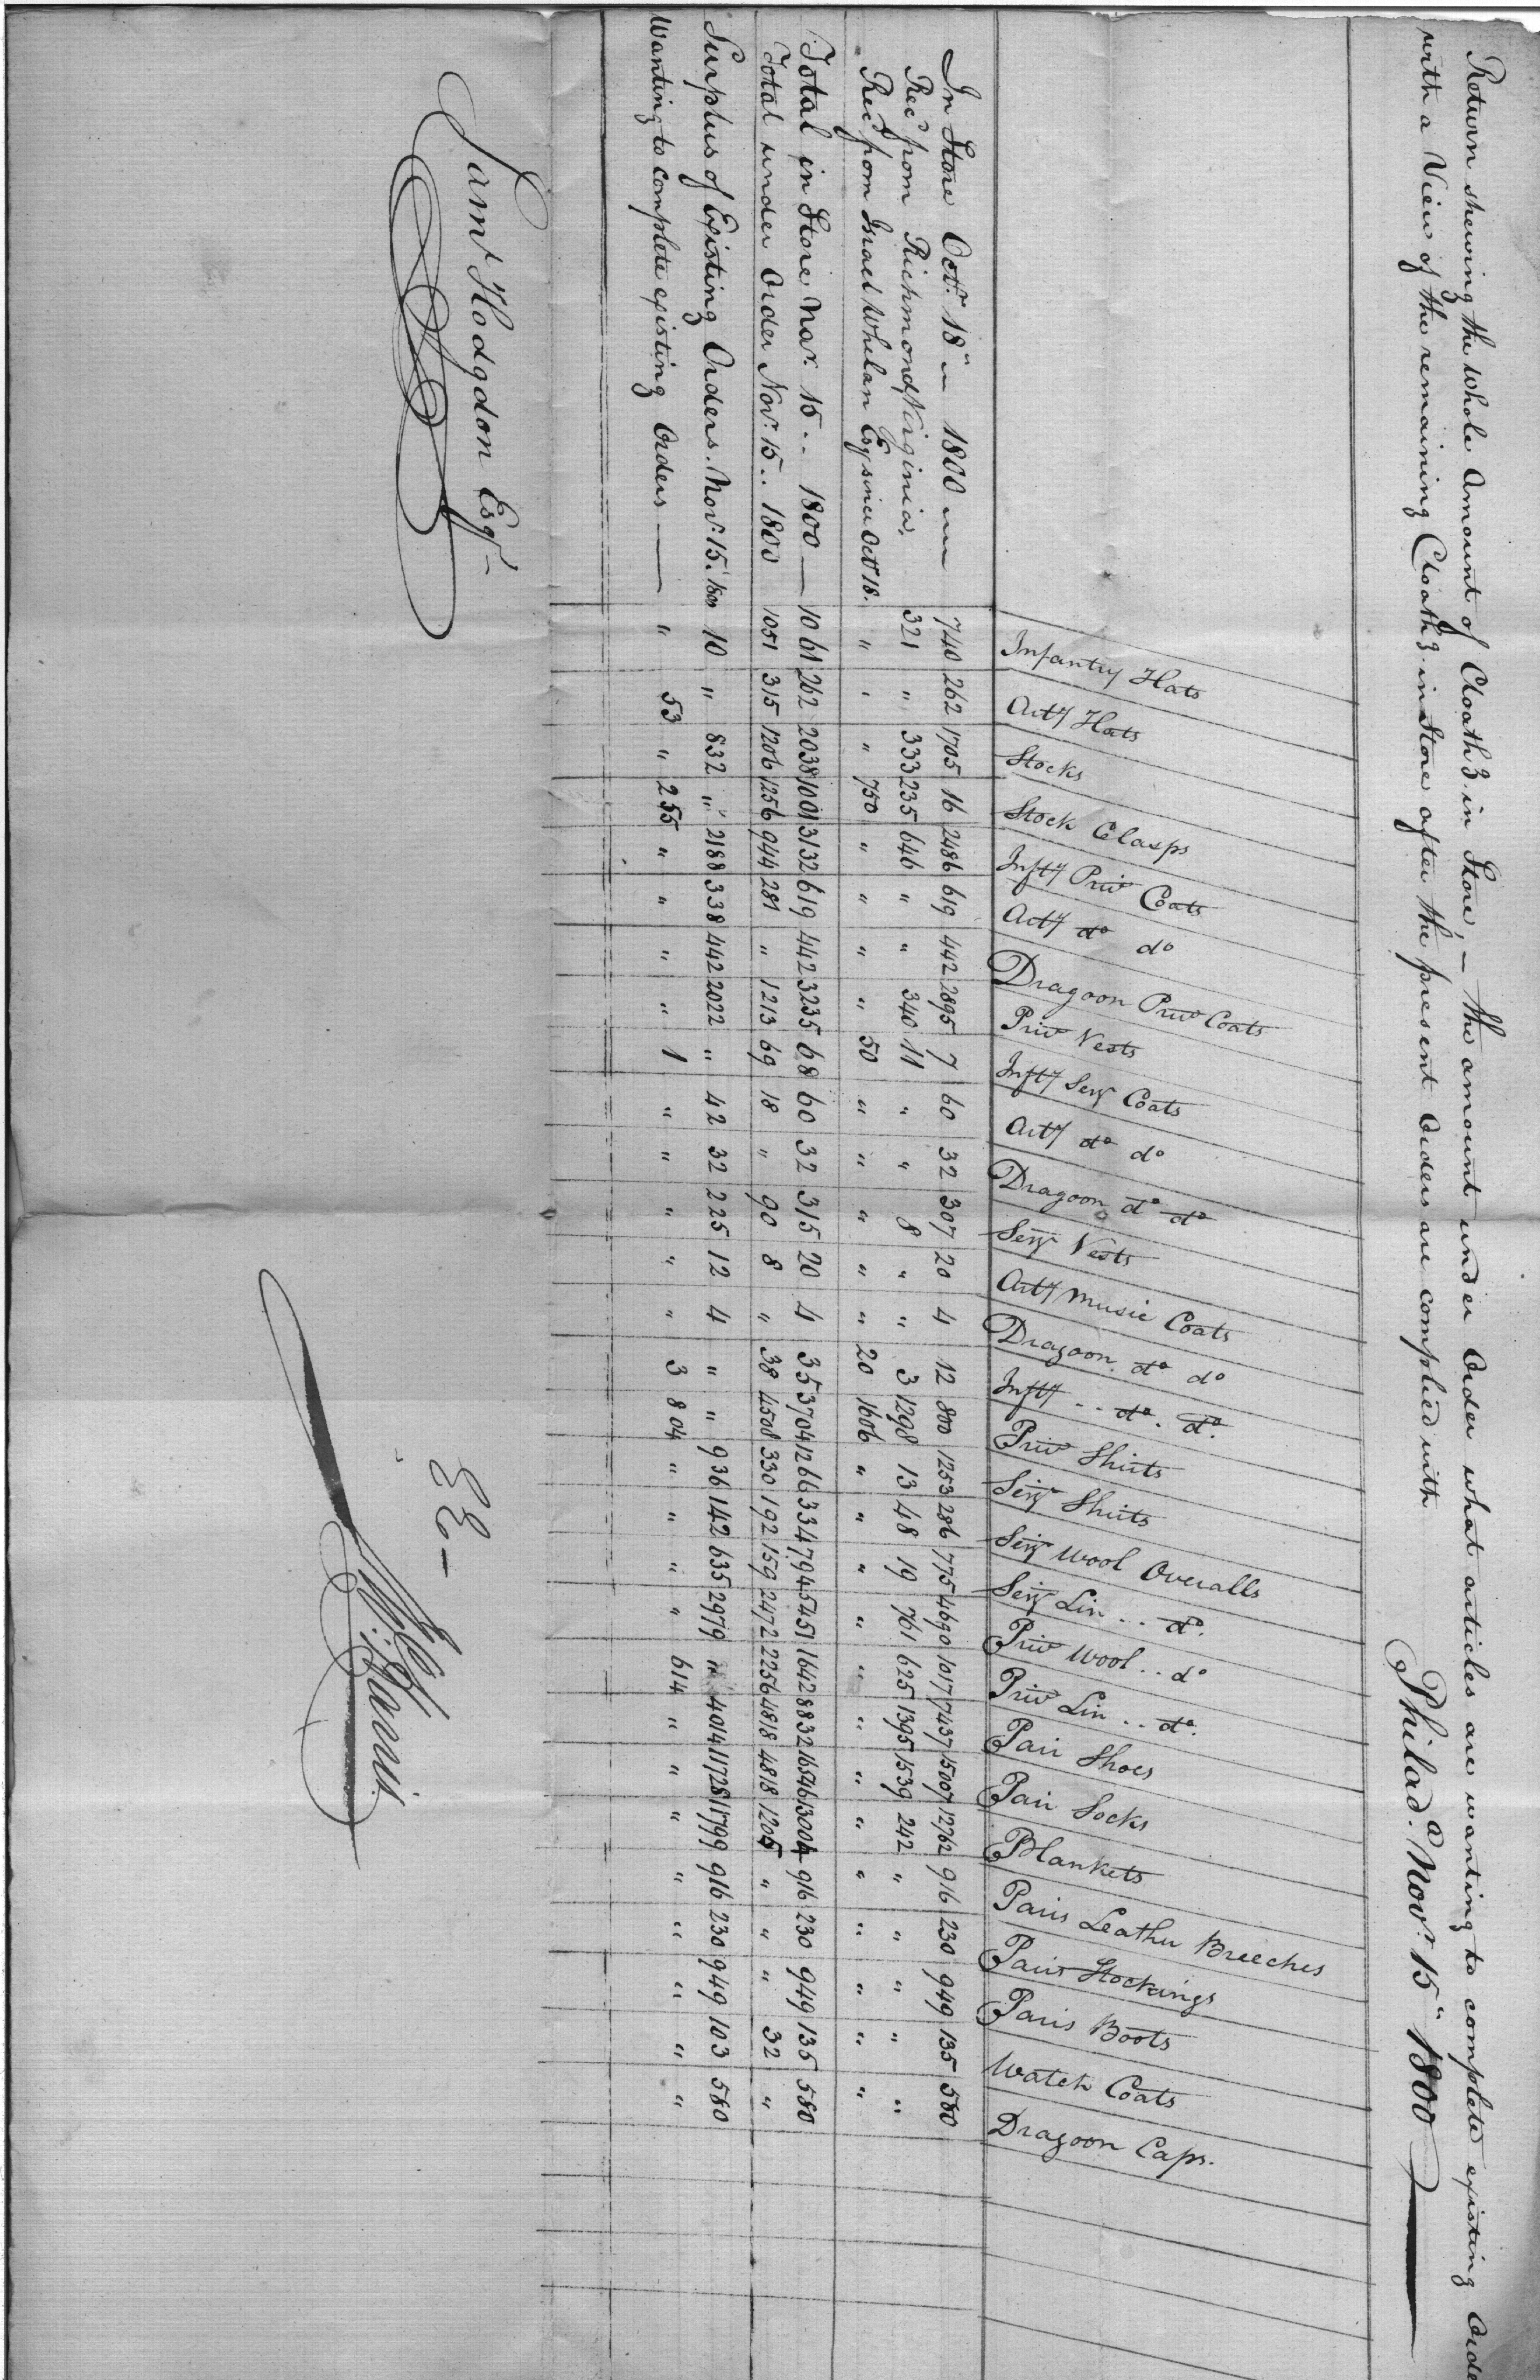 Return shewing the whole Amount of Cloathg. in Store, — the amount under Order what articles are wanting to complete existing Orde
with a View of the remaining Cloathg. in Store after the present Orders are complied with
Philada. Novr. 15" 1800
Infantry Hats
Arty Hats
Stocks
Stock Clasps
Infty Priv Coats
Arty do do
Dragoon Priv Coats
Priv Vests
Infty Serj Coats
Arty do do
Dragoon do do
Serj Vests
Arty Music Coats
Dragoon do do
Infty .. do. do.
Priv Shirts
Serj Shirts
Serj Wool Overalls
Serj Lin .. do.
Priv Wool .. do
Priv Lin .. do.
Pair Shoes
Pair Socks
Blankets
Pairs Leather Breeches
Pairs Stockings
Pairs Boots
Watch Coats
Dragoon Caps.
In Store Octr. 18" 1800 740 262 1705 16 2486 619 442 2895 7 60 32 307 20 4 12 800 1253 286 775 4690 1017 7437 15007 12762 916 230 949 135 580
Recd from Richmond Virginia. 321 " 333 235 646 " " 340 11 " " 8 " " 3 1298 13 48 19 761 625 1395 1539 242 " " " " "
Recd from Israel Whelan Esq since Octr 18. " " " 750 " " " " 50 " " " " " 20 1606 " " " " " " " " " " " " "
Total in Store Nov. 15 .. 1800 — 1061 262 2038 1001 3132 619 442 3235 68 60 32 315 20 4 35 3704 1266 334 794 5451 1642 8832 16546 13004 916 230 949 135 580
Total under Order Nov. 15 .. 1800 1051 315 1206 1256 944 281 " 1213 69 18 " 90 8 " 38 4508 330 192 159 2472 2256 4818 4818 1205 " " " 32 "
Surplus of Existing Orders. Nov. 15. 1800 10 " 832 " 2188 338 442 2022 " 42 32 225 12 4 " " 936 142 635 2979 " 4014 11728 11799 916 230 949 103 580
Wanting to complete existing Orders — " 53 " 255 " " " " 1 " " " " " 3 804 " " " " 614 " " " " " " " "
Saml Hodgdon Esqr —
EE —